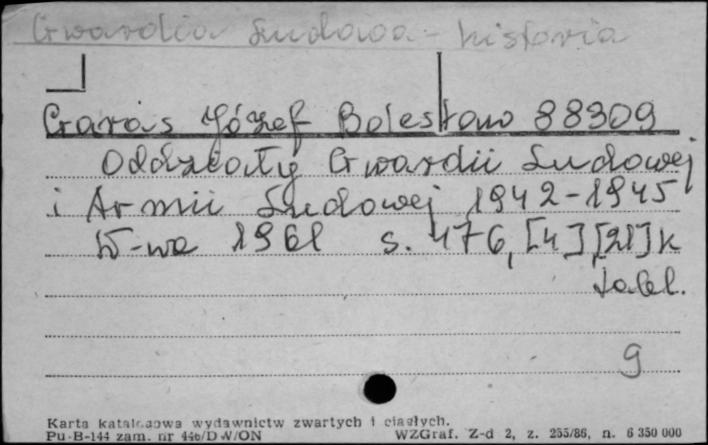 Gwardia Ludowa - historia
Garas Józef Bolesław 88309
Oddziały Gwardii Ludowej
i Armii Ludowej 1942-1945
W-wa 1961 s. 476, [4] [21] k
tabl.
9
Karta katalogowa wydawnictw zwartych i ciągłych.
Pu-B-144 zam. nr 446/DW/ON WZGraf. Z-d 2, z. 255/86, n. 6 350 000